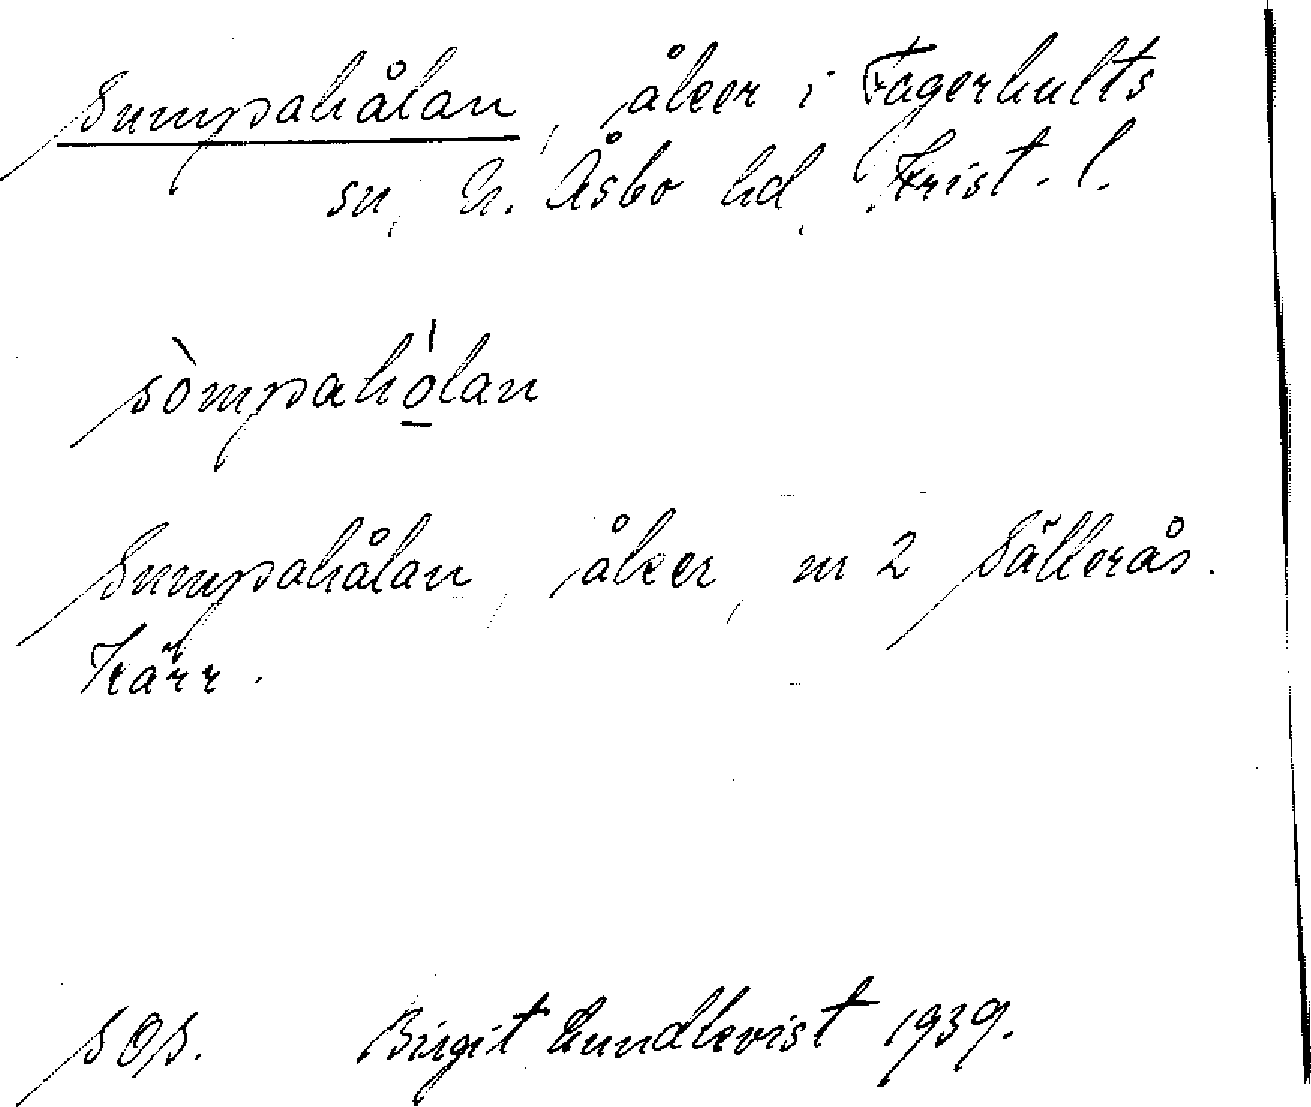 Sumpahålan, åker i Fagerhults
sn, N. Åsbo hd, Krist. l.
sòmpaho̲ˈlan
Sumpahålan, åker, nr 2 Sällerås.
Kärr.
SOS. Birgit Lundkvist 1939.